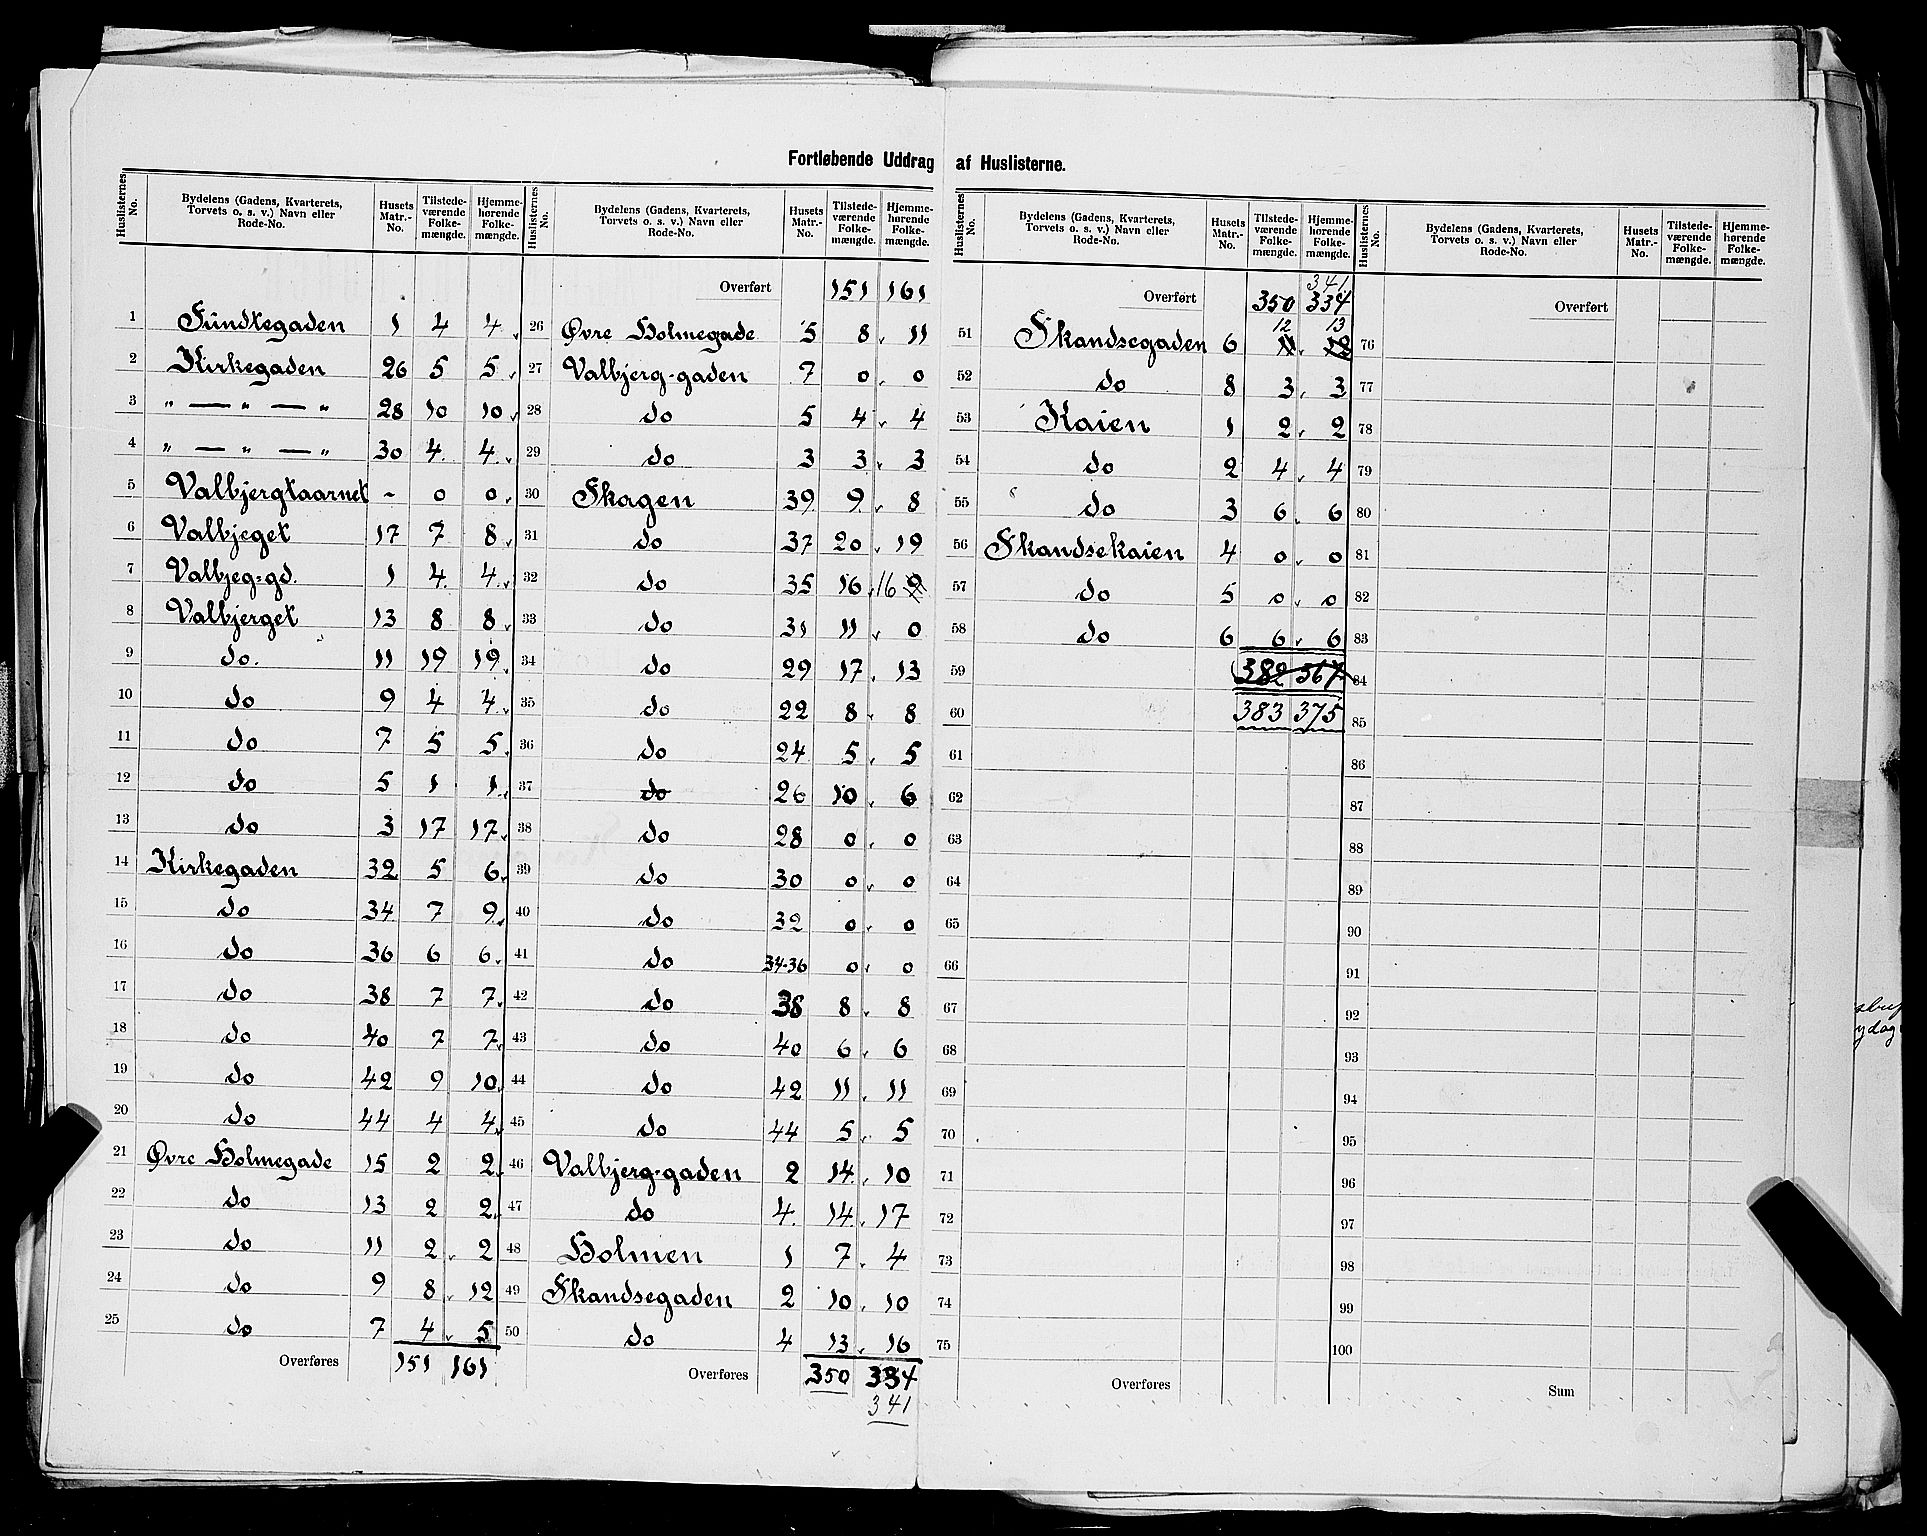 Fortløbende Uddrag af Huslisterne.
Huslisternes No. | Bydelens (Gadens, Kvarterets, Torvets o. s. v.) Navn eller Rode-No. | Husets Matr.-No. | Tilstedeværende Folkemængde. | Hjemmehørende Folkemængde.
1 Sundtegaden 1 4 4
2 Kirkegaden 26 5 5
3 " — " — " 28 10 10
4 " — " — " 30 4 4
5 Valbjergtaarnet - 0 0
6 Valbjeget 17 7 8
7 Valbjeg=gd. 1 4 4
8 Valbjerget 13 8 8
9 do. 11 19 19
10 do 9 4 4
11 do 7 5 5
12 do 5 1 1
13 do 3 17 17
14 Kirkegaden 32 5 6
15 do 34 7 9
16 do 36 6 6
17 do 38 7 7
18 do 40 7 7
19 do 42 9 10
20 do 44 4 4
21 Øvre Holmegade 15 2 2
22 do 13 2 2
23 do 11 2 2
24 do 9 8 12
25 do 7 4 5
Overføres 151 161
Huslisternes No. | Bydelens (Gadens, Kvarterets, Torvets o. s. v.) Navn eller Rode-No. | Husets Matr.-No. | Tilstedeværende Folkemængde. | Hjemmehørende Folkemængde.
Overført 151 161
26 Øvre Holmegade 5 8 11
27 Valbjerg=gaden 7 0 0
28 do 5 4 4
29 do 3 3 3
30 Skagen 39 9 8
31 do 37 20 19
32 do 35 16 16 9
33 do 31 11 0
34 do 29 17 13
35 do 22 8 8
36 do 24 5 5
37 do 26 10 6
38 do 28 0 0
39 do 30 0 0
40 do 32 0 0
41 do 34-36 0 0
42 do 38 8 8
43 do 40 6 6
44 do 42 11 11
45 do 44 5 5
46 Valbjerg=gaden 2 14 10
47 do 4 14 17
48 Holmen 1 7 4
49 Skandsegaden 2 10 10
50 do 4 13 16
Overføres 350 334
341
Huslisternes No. | Bydelens (Gadens, Kvarterets, Torvets o. s. v.) Navn eller Rode-No. | Husets Matr.-No. | Tilstedeværende Folkemængde. | Hjemmehørende Folkemængde.
341
Overført 350 334
12 13
51 Skandsegaden 6 11 12
52 do 8 3 3
53 Kaien 1 2 2
54 do 2 4 4
55 do 3 6 6
56 Skandsekaien 4 0 0
57 do 5 0 0
58 do 6 6 6
59 382 367
60 383 375
61
62
63
64
65
66
67
68
69
70
71
72
73
74
75
Overføres
Huslisternes No. | Bydelens (Gadens, Kvarterets, Torvets o. s. v.) Navn eller Rode-No. | Husets Matr.-No. | Tilstedeværende Folkemængde. | Hjemmehørende Folkemængde.
Overført
76
77
78
79
80
81
82
83
84
85
86
87
88
89
90
91
92
93
94
95
96
97
98
99
100
Sum